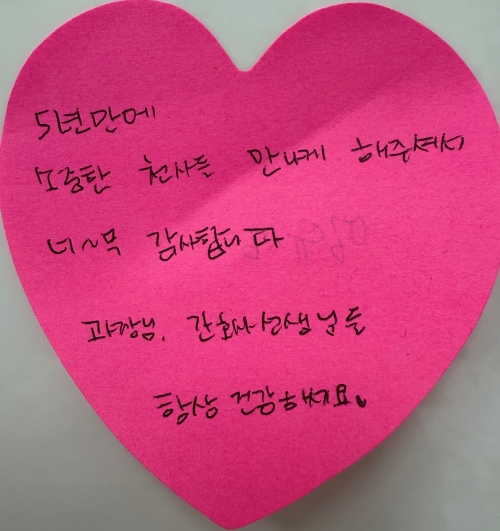 5년만에
소중한 천사들 만나게 해주셔서
너~무 감사합니다
과장님, 간호사선생님들
항상 건강하세요~